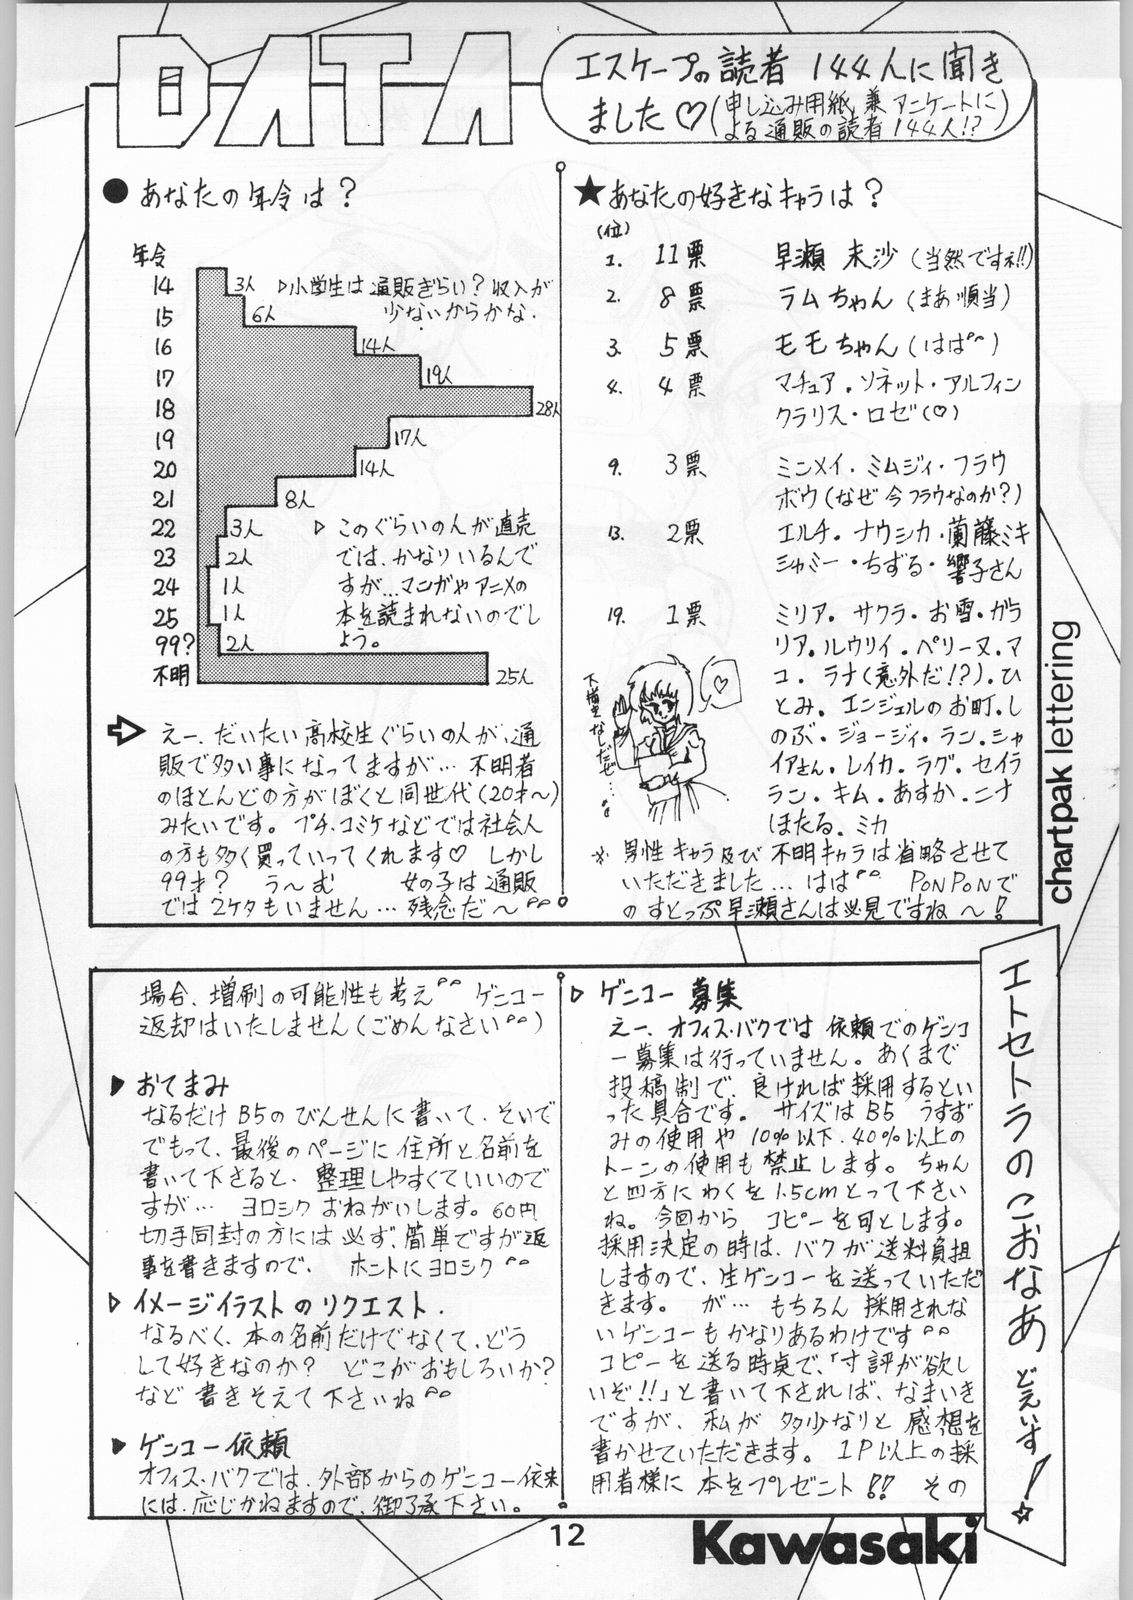 DATA
エスケープの読者 144人に聞き
ました♡(申し込み用紙兼アンケートに
よる通販の読者144人!?)
●あなたの年令は?
年令
14 3人
15 6人
16 14人
17 19人
18 28人
19 17人
20 14人
21 8人
22 3人
23 2人
24 1人
25 1人
99? 2人
不明 25人
▷小学生は通販ぎらい?収入が
少ないからかな.
▷このぐらいの人が直売
では、かなりいるんで
すが…マンガやアニメの
本を読まれないのでし
ょう。
⇨えー、だいたい高校生ぐらいの人が、通
販で多い事になってますが… 不明者
のほとんどの方がぼくと同世代(20才〜)
みたいです。 プチ・コミケなどでは社会人
の方も多く買っていってくれます♡ しかし
99才? う〜む 女の子は通販
では2ケタもいません…残念だ〜
★あなたの好きなキャラは?
(位)
1. 11票 早瀬 未沙(当然ですネ!!)
2. 8票 ラムちゃん(まあ順当)
3. 5票 モモちゃん(はは)
4. 4票 マチュア・ソネット・アルフィン
クラリス・ロゼ(♡)
9. 3票 ミンメイ・ミムジィ・フラウ
ボウ(なぜ今フラウなのか?)
13. 2票 エルチ・ナウシカ・蘭藤ミキ
シャミー・ちずる・響子さん
19. 1票 ミリア・サクラ・お雪・ガラ
リア・ルウリイ・ペリーヌ・マ
コ・ラナ(意外だ!?)・ひ
とみ・エンジェルのお町・し
のぶ・ジョージィ・ラン・シャ
イアさん・レイカ・ラグ・セイラ
ラン・キム・あすか・ニナ
ほたる・ミカ
下描きなしだぜ…
♡
※男性キャラ及び不明キャラは省略させて
いただきました…はは PONPONで
のすとっぷ早瀬さんは必見ですね〜!
chartpak lettering
場合、増刷の可能性も考え ゲンコー
返却はいたしません(ごめんなさい)
▶おてまみ
なるだけB5のびんせんに書いて、そいで
でもって、最後のページに住所と名前を
書いて下さると、整理しやすくていいので
すが… ヨロシクおねがいします。60円
切手同封の方には必ず、簡単ですが返
事を書きますので、 ホントにヨロシク
▷イメージイラストのリクエスト.
なるべく、本の名前だけでなくて、どう
して好きなのか? どこがおもしろいか?
など書きそえて下さいね
▶ゲンコー依頼
オフィス・バクでは、外部からのゲンコー依来
には、応じかねますので、御了承下さい。
▷ゲンコー募集
えー、オフィス・バクでは依頼でのゲンコ
ー募集は行っていません。あくまで
投稿制で、良ければ採用するとい
った具合です。 サイズはB5 うすず
みの使用や10%以下、40%以上の
トーンの使用も禁止します。ちゃん
と四方にわくを1.5cmとって下さい
ね。今回から コピーを可とします。
採用決定の時は、バクが送料負担
しますので、生ゲンコーを送っていただ
きます。 が… もちろん採用されな
いゲンコーもかなりあるわけです
コピーを送る時点で、「寸評が欲し
いぞ!!」と書いて下されば、なまいき
ですが、私が多少なりと感想を
書かせていただきます。1P以上の採
用者様に本をプレゼント!! その
エトセトラのこおなあ どぇいす!☆
12
Kawasaki